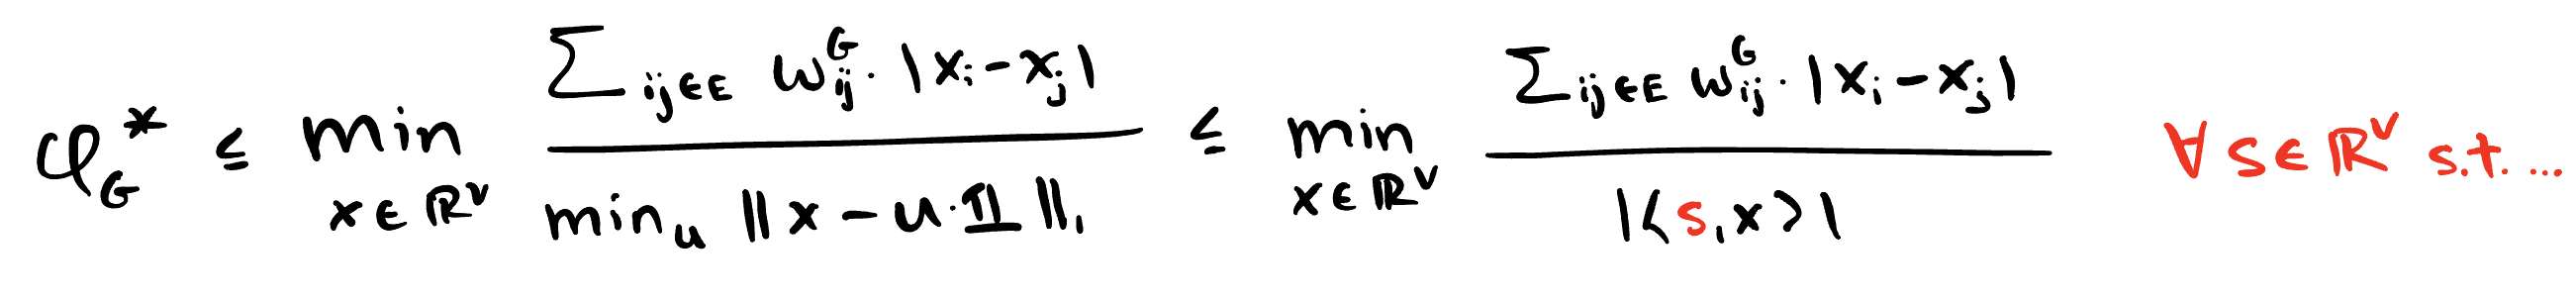 φ_G^* ≤ min_{x∈ℝ^V} \frac{∑_{ij∈E} w_{ij}^G · |x_i − x_j|}{min_u ‖x − u·𝟙‖_1} ≤ min_{x∈ℝ^V} \frac{∑_{ij∈E} w_{ij}^G · |x_i − x_j|}{|⟨s,x⟩|} ∀ s∈ℝ^V s.t. ...